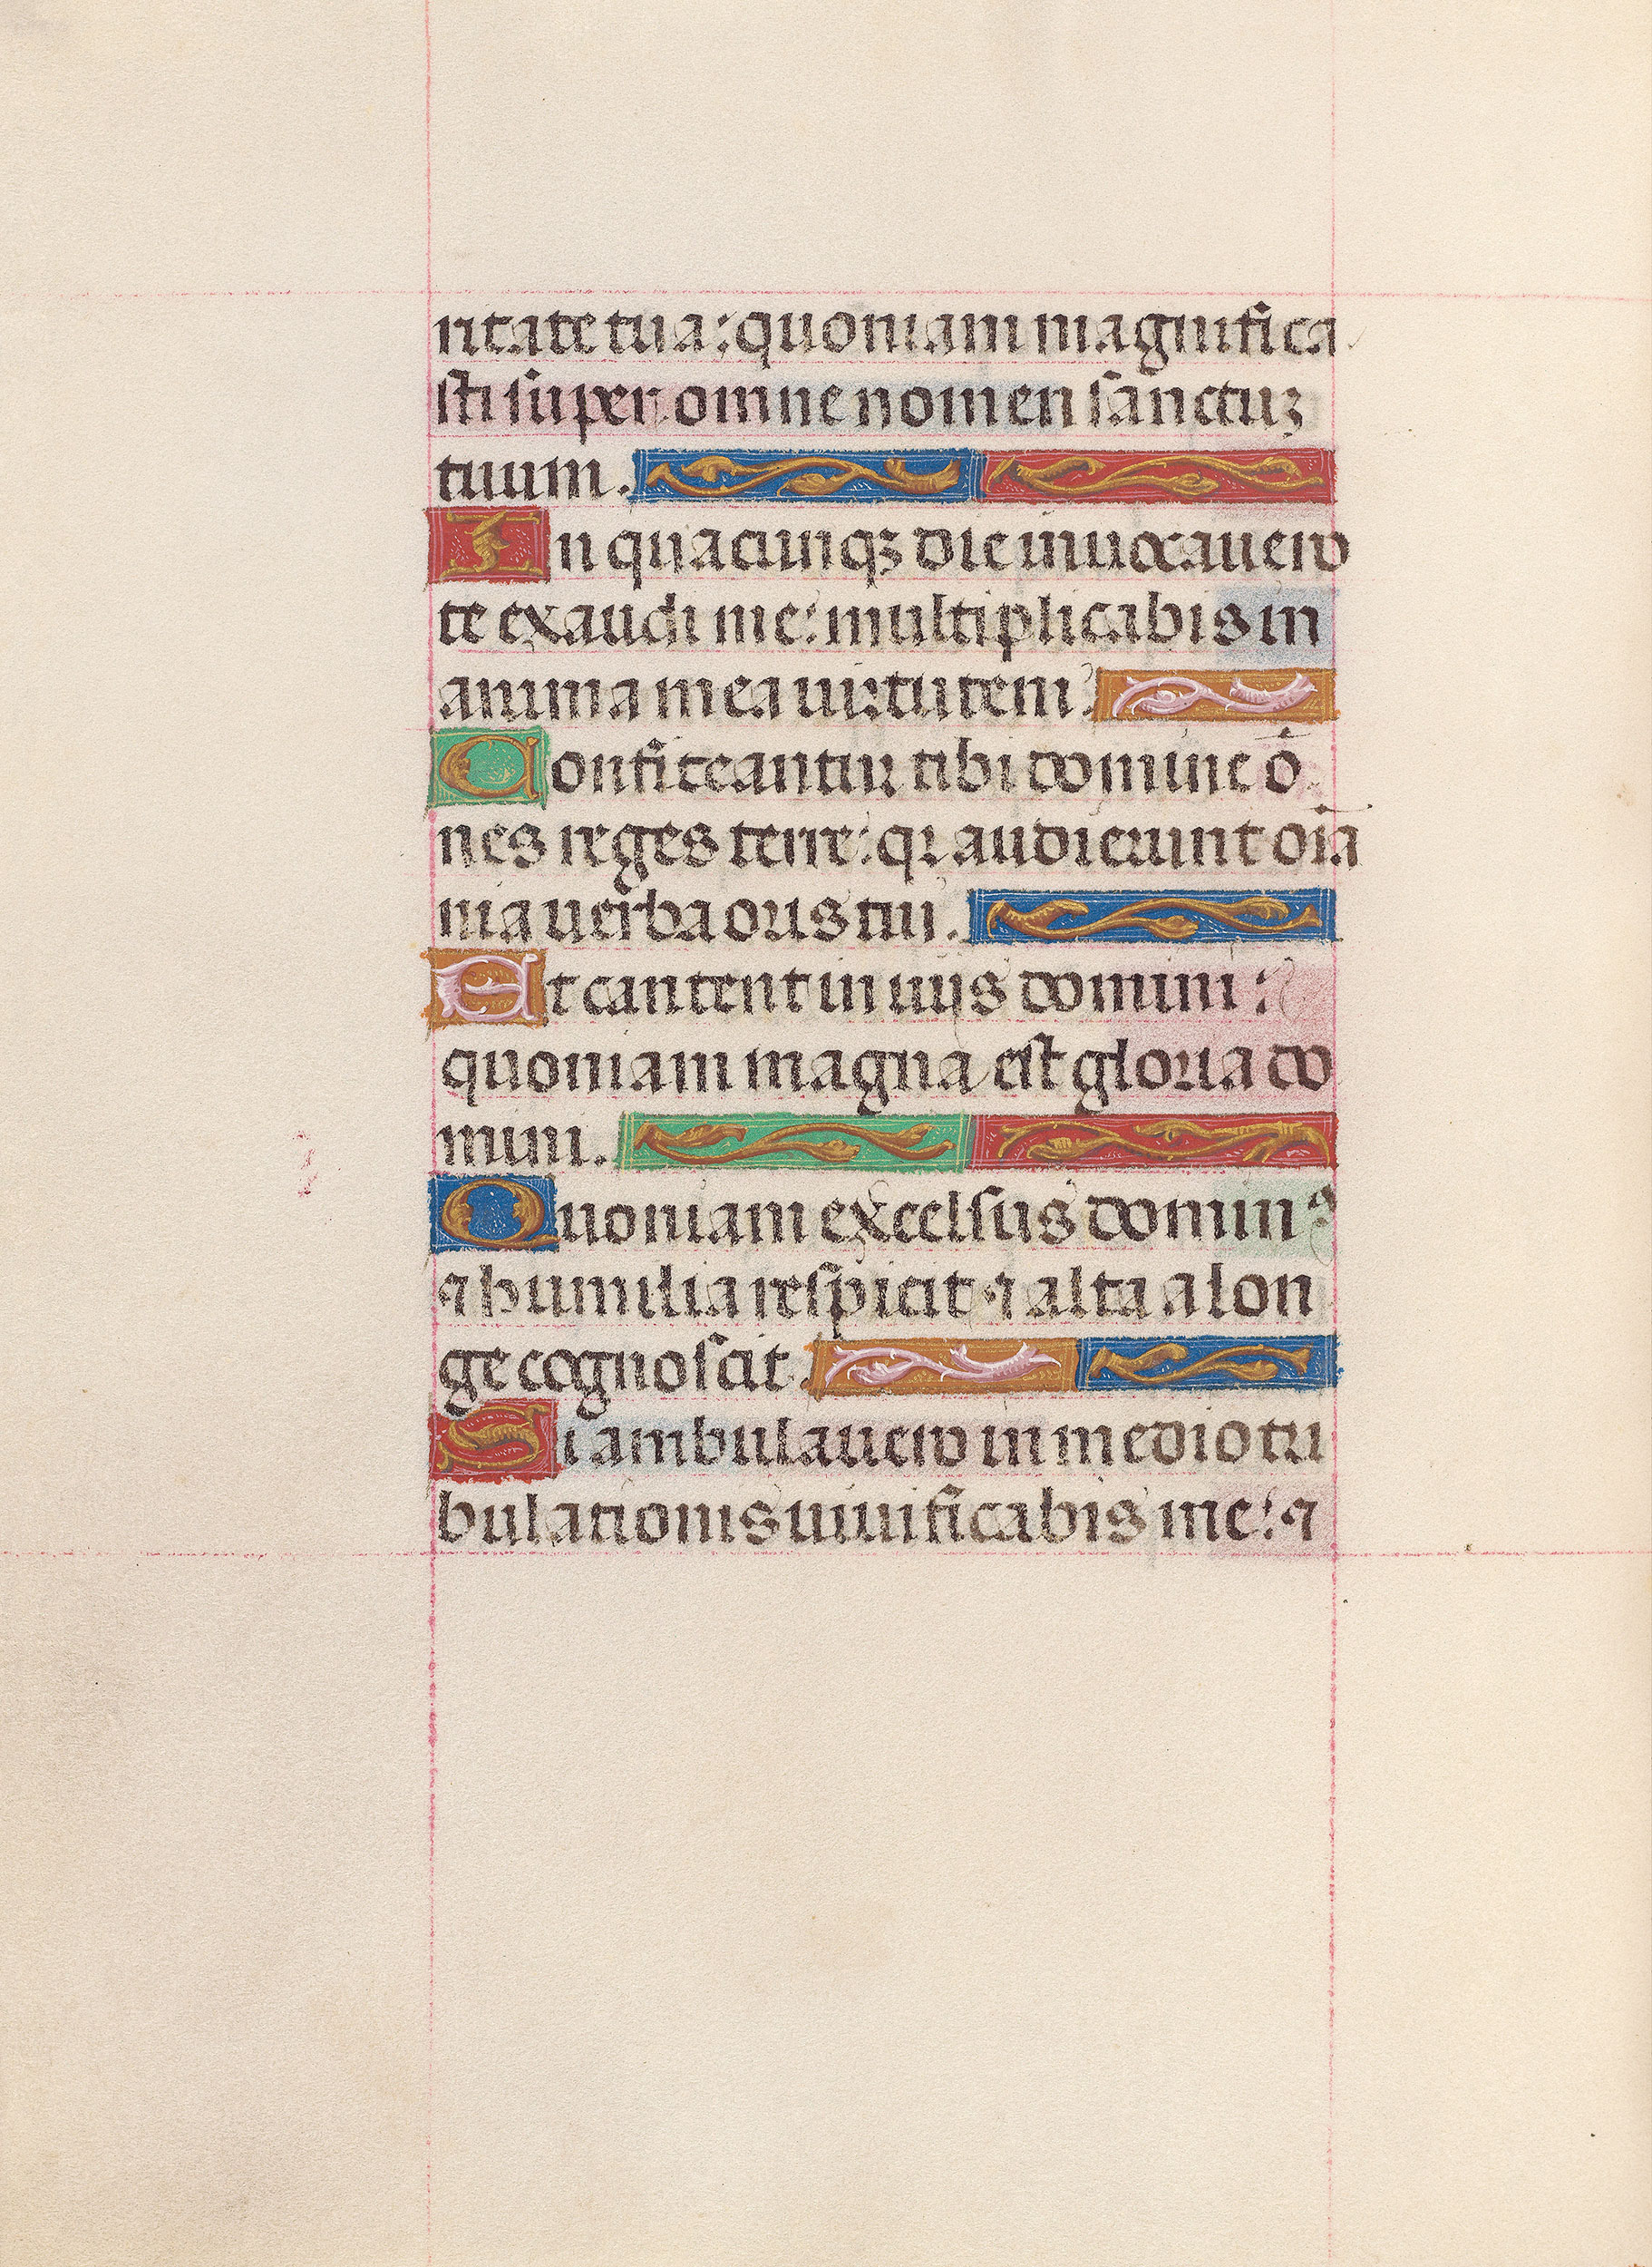 ritate tua: quoniam magnifica
sti super omne nomen sanctuʒ
tuum.
In quacunqʒ die inuocauero
te exaudi me: multiplicabis in
anima mea uirtutem.
Confiteantur tibi domine õ
nes reges terre: qr audierunt oĩa
nia uerba oris tui.
Et cantent in uijs domini:
quoniam magna est gloria do
mini.
Quoniam excelsus dominꝰ
⁊ humilia respicit ⁊ alta a lon
ge cognoscit.
Si ambulauero in medio tri
bulationis uiuificabis me: ⁊